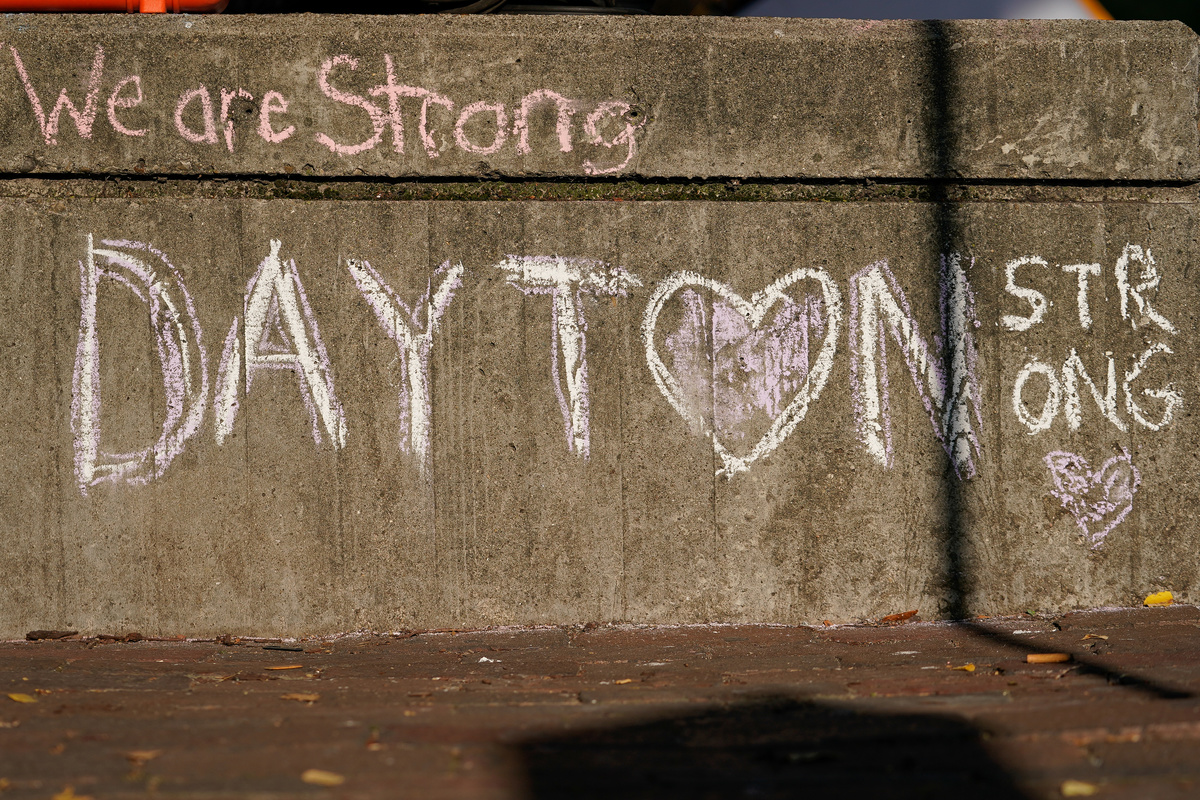 We are Strong
DAYT♥N
STR
ONG